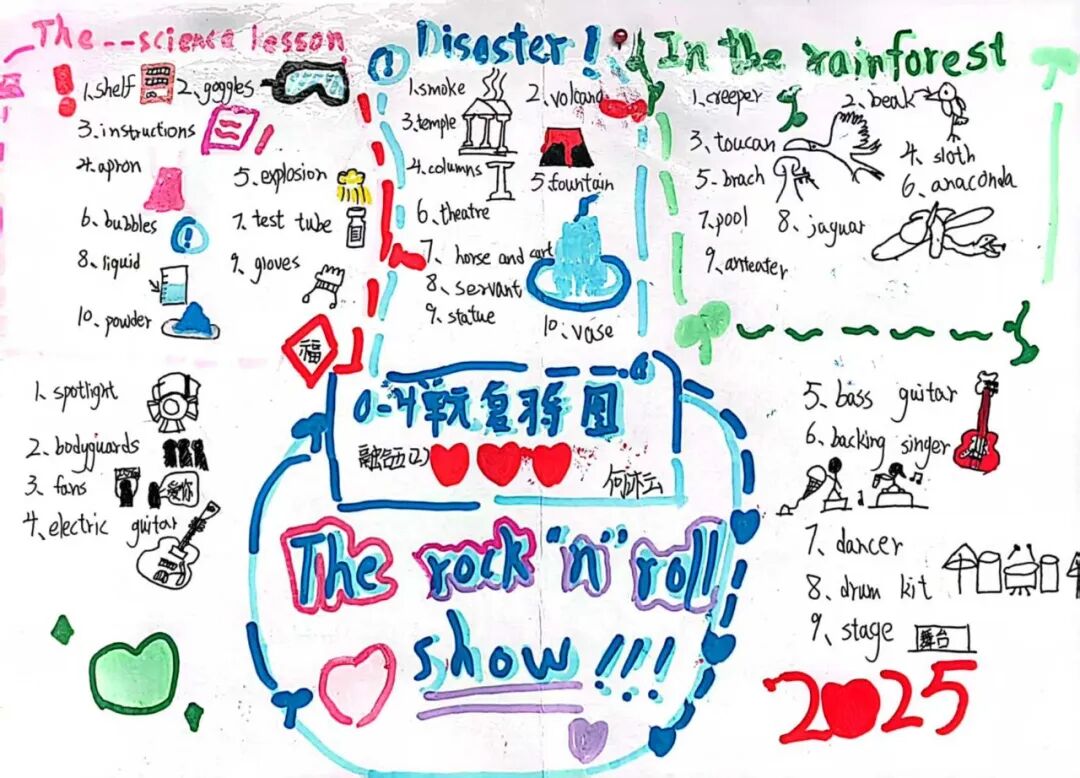 The--science lesson
1、shelf 2、goggles
3、instructions
4、apron
5、explosion
6、bubbles
7、test tube
8、liquid
9、gloves
10、powder
Disaster!
1、smoke
2、volcano
3、temple
4、columns
5、fountain
6、theatre
7、horse and cart
8、servant
9、statue
10、vase
In the rainforest
1、creeper
2、beak
3、toucan
4、sloth
5、brach
6、anaconda
7、pool
8、jaguar
9、anteater
福
0-4单元复习图
The rock "n" roll
show!!!
1、spotlight
2、bodyguards
3、fans
爱你
4、electric guitar
5、bass guitar
6、backing singer
7、dancer
8、drum kit
9、stage
舞台
2025